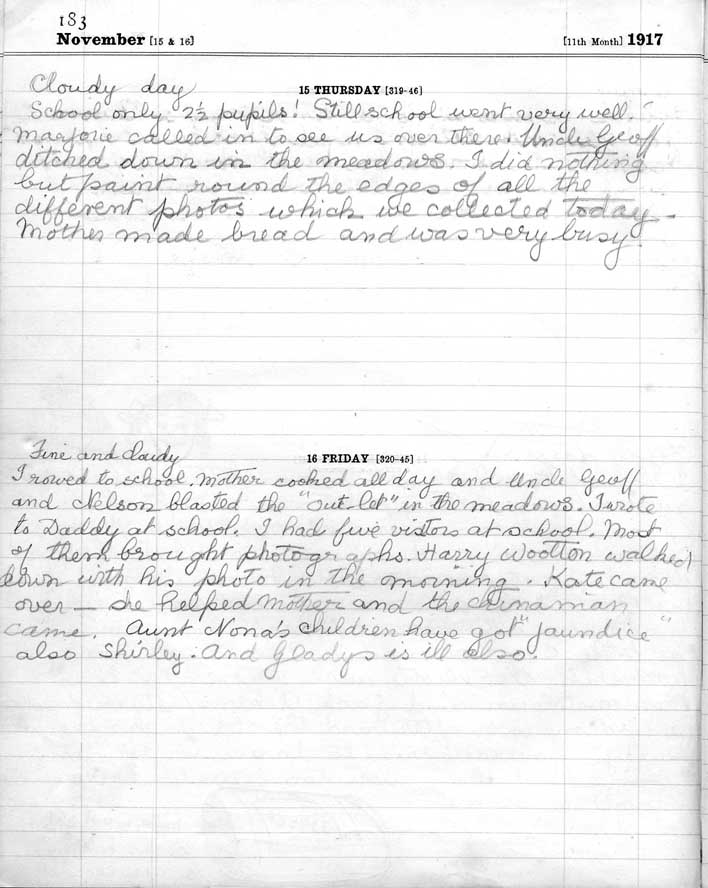 183
November [15 & 16] [11th Month] 1917
Cloudy day 15 THURSDAY [319-46]
School only 2½ pupils! Still school went very well.
Marjorie called in to see us over there. Uncle Geoff
ditched down in the meadows. I did nothing
but paint round the edges of all the
different photos which we collected today -
Mother made bread and was very busy.
Fine and Cloudy 16 FRIDAY [320-45]
I rowed to school. Mother cooked all day and Uncle Geoff
and Nelson blasted the "out-let" in the meadows. I wrote
to Daddy at school. I had five vistors at school. Most
of them brought photographs. Harry Wootton walked
down with his photo in the morning. Kate came
over — she helped Mother and the chinaman
came. Aunt Nona's children have got "jaundice"
also Shirley. And Gladys is ill also.